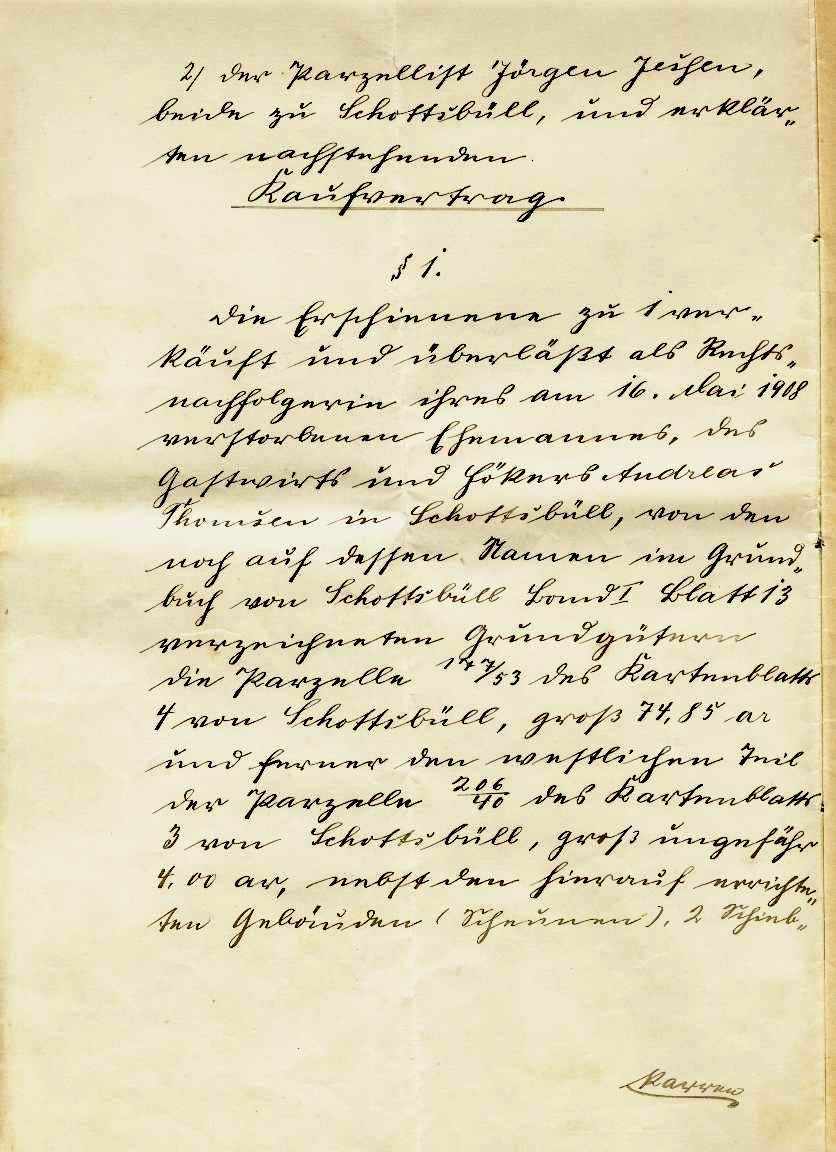 2/ der Parzellist Jörgen Jessen,
beide zu Schottsbüll, und erklär„
ten nachstehenden
Kaufvertrag.
§ 1.
Die Erschienene zu 1 ver„
käuft und überläßt als Rechts„
nachfolgerin ihres am 16. Mai 1908
verstorbenen Ehemannes, des
Gastwirts und Hökers Andreas
Thomsen in Schottsbüll, von den
noch auf dessen Namen im Grund„
buch von Schottsbüll Band I Blatt 13
verzeichneten Grundgütern
die Parzelle 147/53 des Kartenblatts
4 von Schottsbüll, groß 74,85 ar
und ferner den westlichen Teil
der Parzelle 206/40 des Kartenblatts
3 von Schottsbüll, groß ungefähr
4,00 ar, nebst den hierauf errichte„
ten Gebäuden (Scheunen), 2 Schieb„
Karren